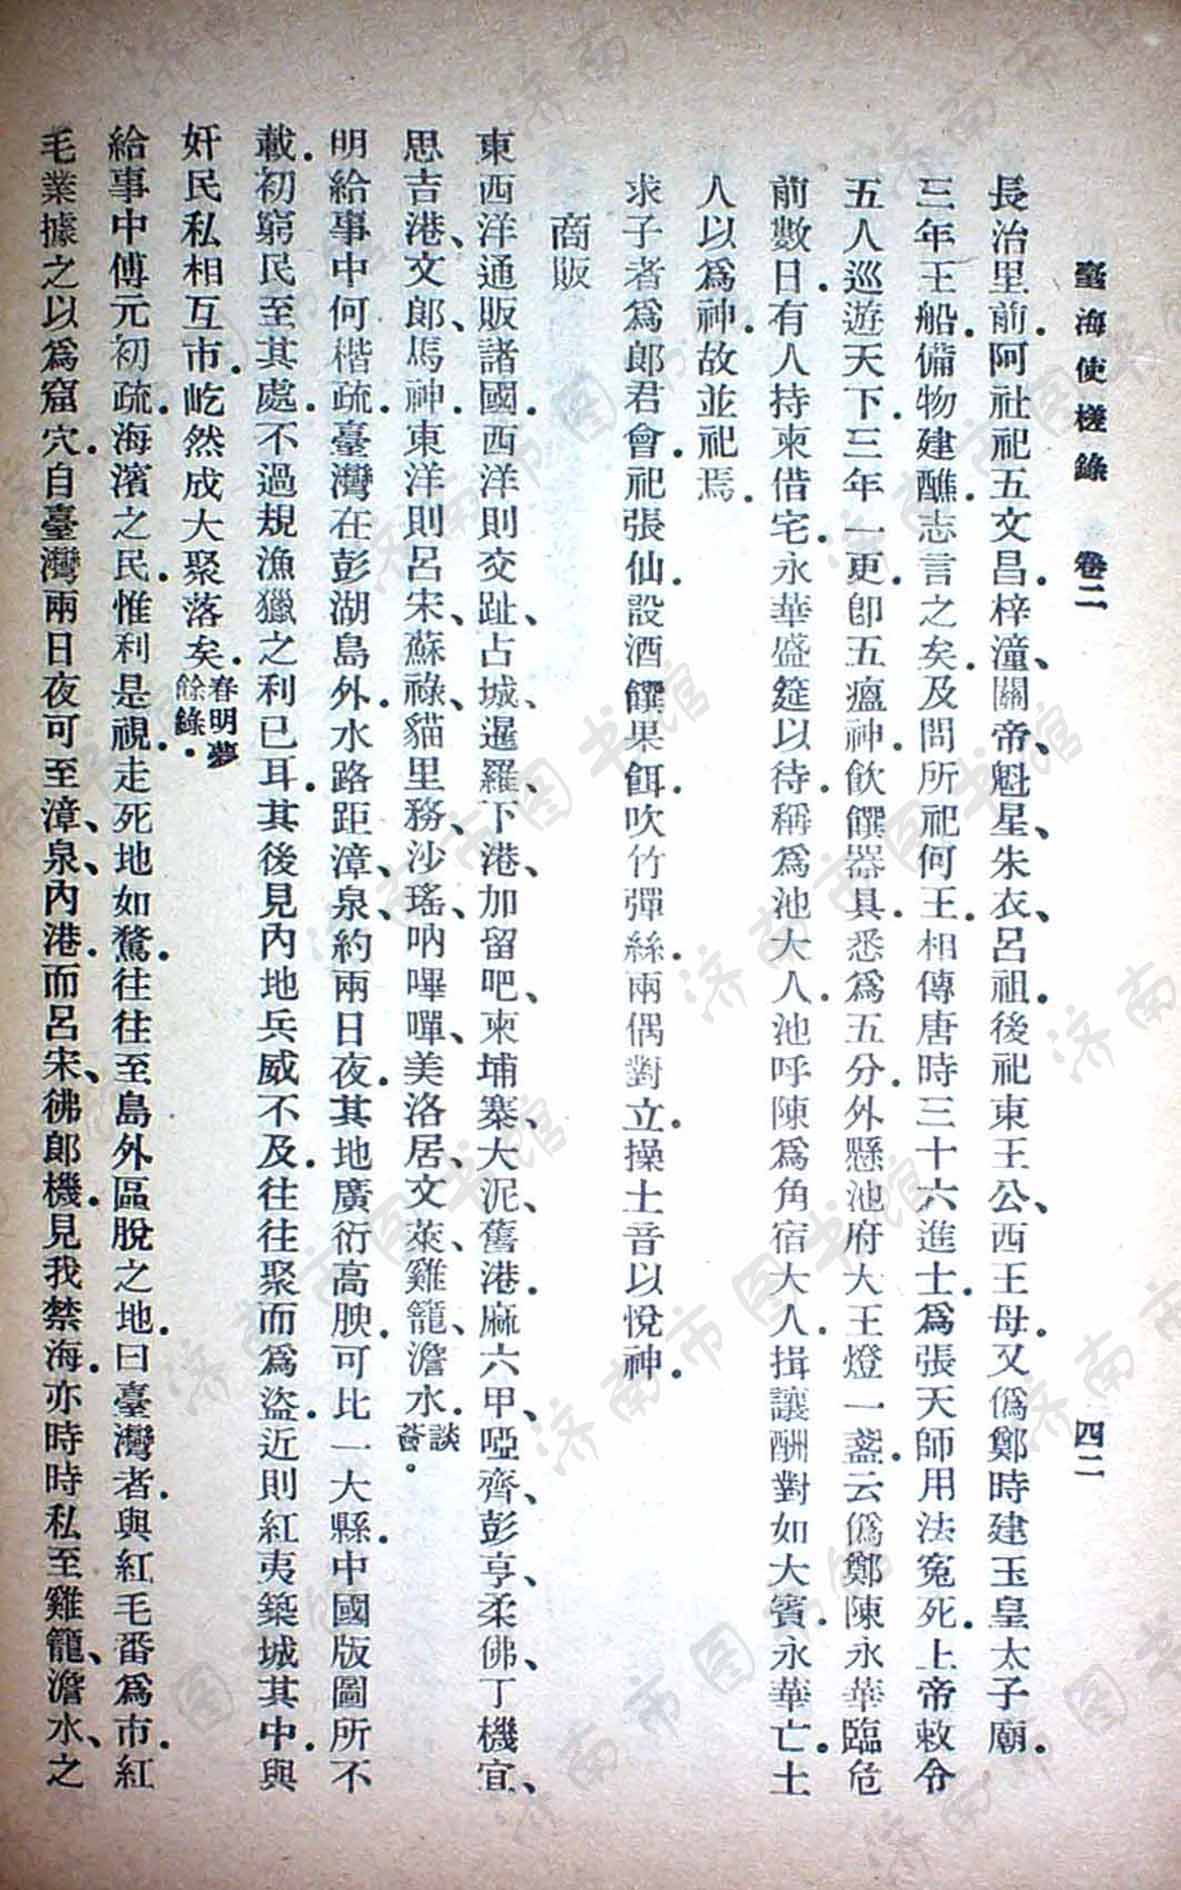 臺海使槎錄　卷二　四二
長治里前．阿社祀五文昌．梓潼、關帝、魁星、朱衣、呂祖．後祀東王公、西王母．又僞鄭時建玉皇太子廟．
三年王船．備物建醮．志言之矣．及問所祀何王．相傳唐時三十六進士．爲張天師用法冤死．上帝敕令
五人巡遊天下．三年一更．卽五瘟神．飲饌器具．悉爲五分．外懸池府大王燈一盞．云僞鄭陳永華臨危
前數日．有人持柬借宅．永華盛筵以待．稱爲池大人．池呼陳爲角宿大人．揖讓酬對如大賓．永華亡．土
人以爲神．故並祀焉．
求子者爲郎君會．祀張仙．設酒饌果餌．吹竹彈絲．兩偶對立．操土音以悅神．
商販
東西洋通販諸國．西洋則交趾、占城、暹羅、下港、加留吧、柬埔寨、大泥、舊港．麻六甲、啞齊、彭亨、柔佛、丁機宜、
思吉港、文郎、馬神．東洋則呂宋、蘇祿、貓里務、沙瑤、吶嗶嘽、美洛居、文萊、雞籠、澹水．談薈．
明給事中何楷疏．臺灣在彭湖島外．水路距漳、泉、約兩日夜．其地廣衍高腴．可比一大縣．中國版圖所不
載．初窮民至其處．不過規漁獵之利已耳．其後見內地兵威不及．往往聚而爲盜．近則紅夷築城其中．與
奸民私相互市．屹然成大聚落矣．春明夢餘錄．
給事中傅元初疏．海濱之民．惟利是視．走死地如鶩．往往至島外區脫之地．曰臺灣者．與紅毛番爲市．紅
毛業據之以爲窟穴．自臺灣兩日夜可至漳、泉、內港．而呂宋、彿郎機．見我禁海．亦時時私至雞籠、澹水、之